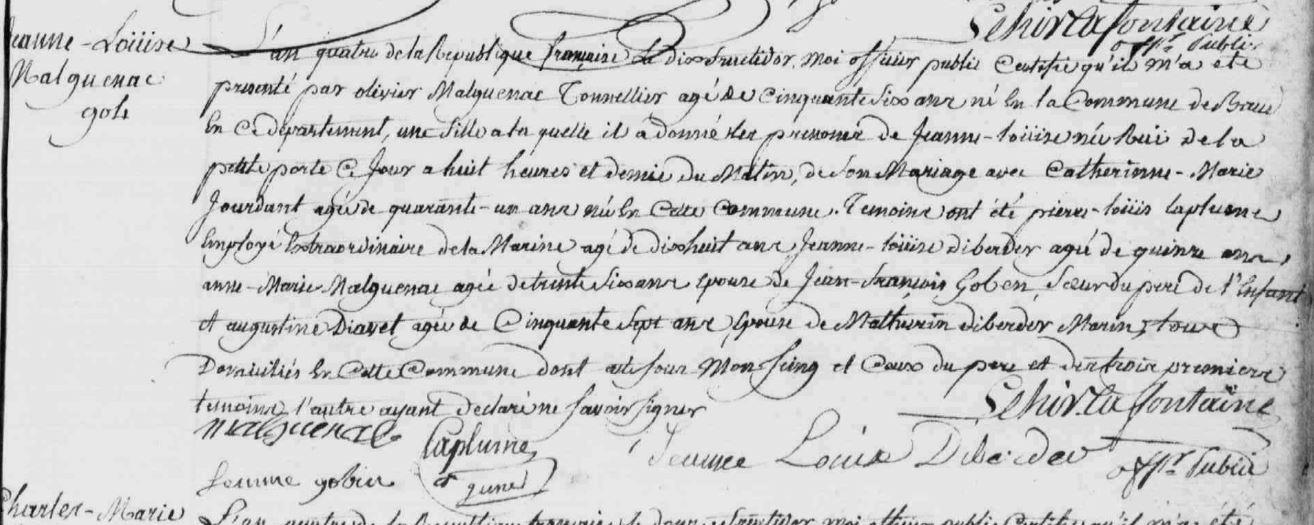 Lehir la fontaine
offr. Public
Jeanne-Loüise
Malguenac
L'an quatre de la Republique française Le dix fructidor, moi officier public Certifie qu'il m'a eté
presenté par olivier Malguenac Tonnellier agé de Cinquante Six ans né En la Commune de
En Ce departement, une fille a la quelle il a donné les prenoms de Jeanne-loüise née Ruë de la
petite porte Ce Jour a huit heures et demie du Matin, de son Mariage avec Catherinne-Marie
Jourdant agée de quarante-un ans née En Cette Commune. Temoins ont été pierre-loüis laplume
Employé Extraordinaire de la Marine agé de dix huit ans Jeanne-loüise diberder agée de quinze ans,
anne-Marie Malguenac agée de trente Six ans Epouse de Jean-françois Goben, Sœur du pere de l'Enfant
et augustine agée de Cinquante Sept ans, Epouse de Mathurin diberder Marin, tous
Domiciliés En Cette Commune dont acte sous Mon Seing et Ceux du pere et des trois premiers
temoins l'autre ayant declaré ne savoir signer
Lehir la fontaine
malguenac Laplume Jeanne Louise Diberder offr. Public
femme jeune
Charles-Marie
L'an quatre de la Republique française le douze fructidor moi officier public Certifie qu'il m'a été